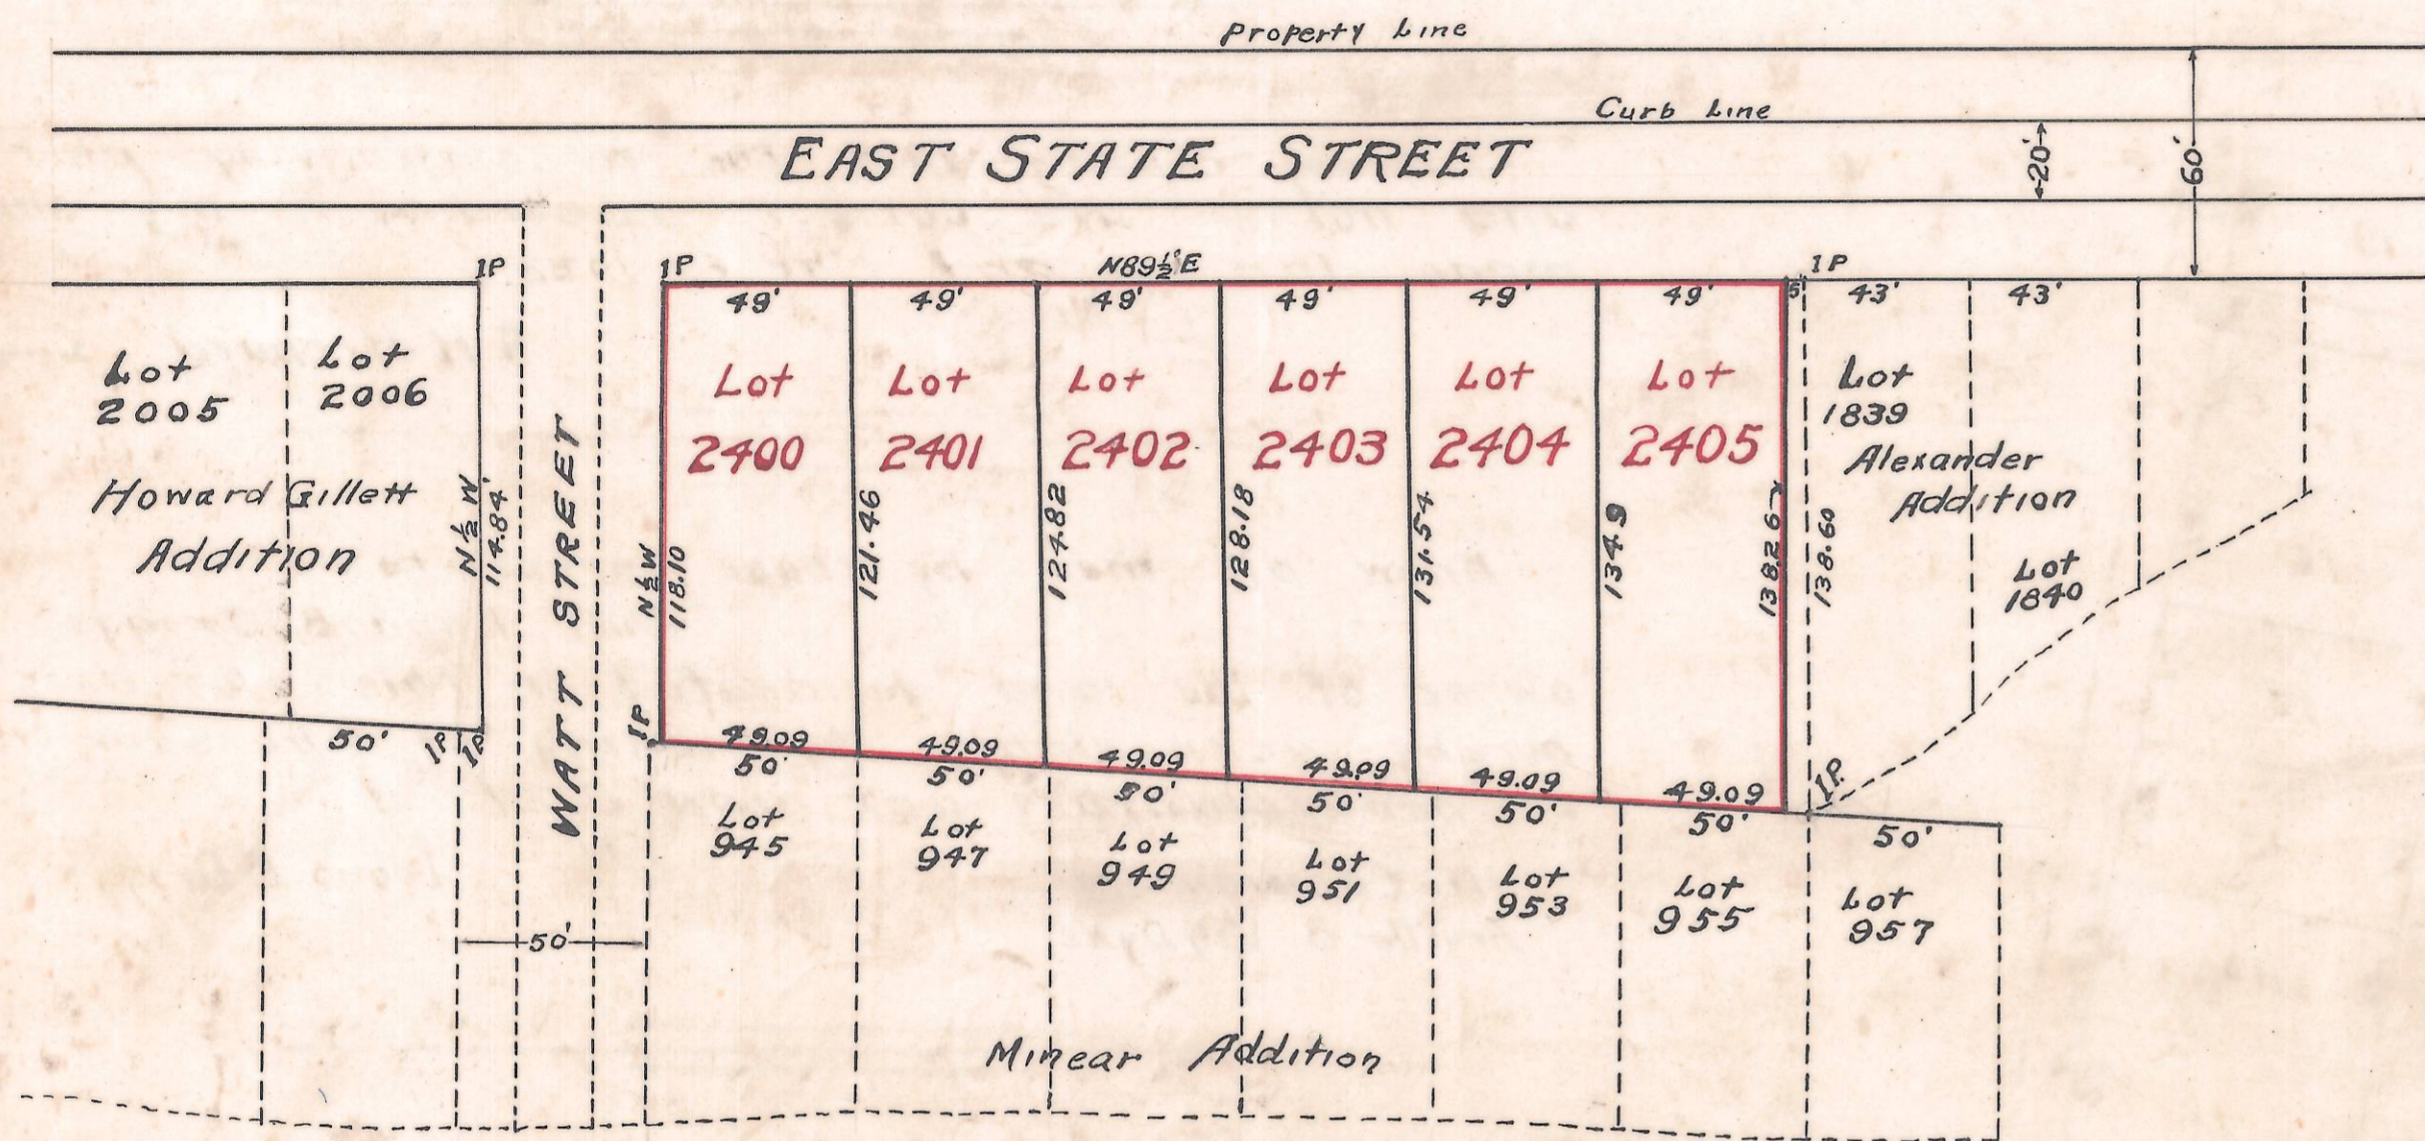 Property Line
Curb Line
EAST STATE STREET
20'
60'
IP
IP
N89½°E
IP
49'
49'
49'
49'
49'
49'
5'
43'
43'
Lot
2005
Lot
2006
Howard Gillett
Addition
N ½ W
114.84'
WATT STREET
N ½ W
118.10
Lot
2400
121.46
Lot
2401
124.82
Lot
2402
128.18
Lot
2403
131.54
Lot
2404
134.9
Lot
2405
138.26
138.60
Lot
1839
Alexander
Addition
Lot
1840
50'
IP
IP
IP
49.09
49.09
49.09
49.09
49.09
49.09
IP
50'
50'
50'
50'
50'
50'
50'
Lot
945
Lot
947
Lot
949
Lot
951
Lot
953
Lot
955
Lot
957
50'
Minear Addition